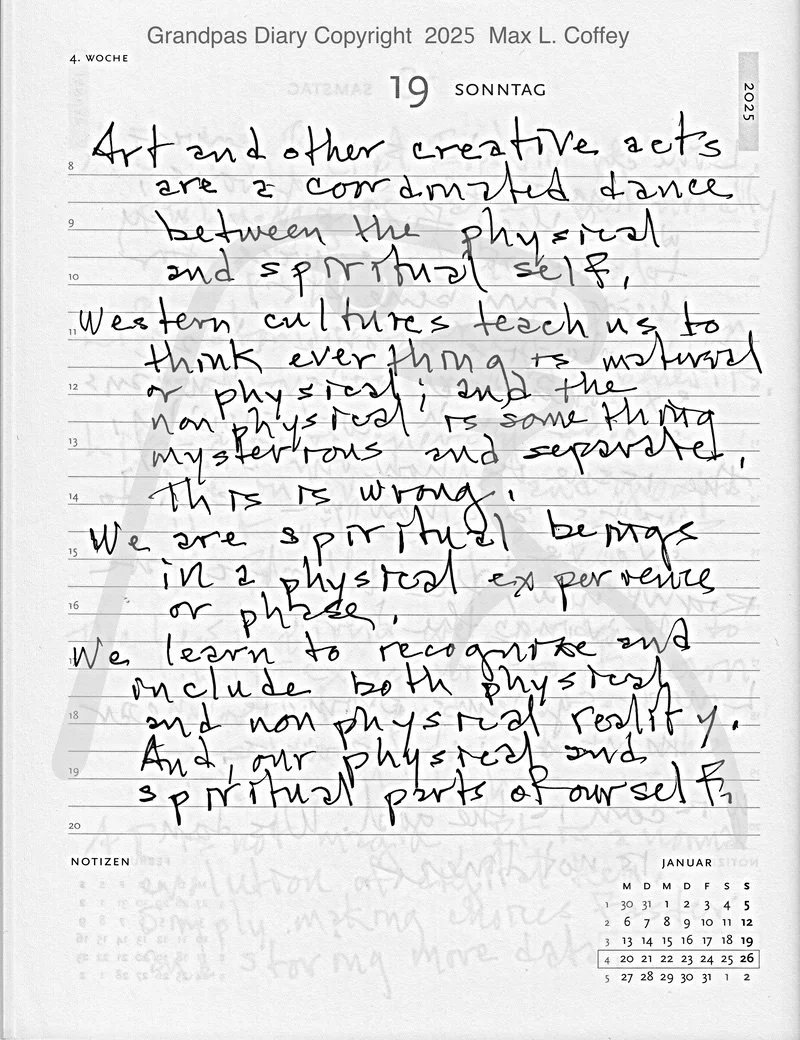 Grandpas Diary Copyright 2025 Max L. Coffey
4. WOCHE
19 SONNTAG
2025
8
Art and other creative acts
are a coordinated dance
9
between the physical
10
and spiritual self.
11
Western cultures teach us to
think everthing is material
12
or physical; and the
non physical is something
13
mysterious and separated.
14
This is wrong.
We are spiritual beings
15
in a physical experience
16
or phase.
We learn to recognize and
17
include both physical
18
and non physical reality.
And, our physical and
19
spiritual parts of our self.
20
NOTIZEN
JANUAR
M D M D F S S
1 30 31 1 2 3 4 5
2 6 7 8 9 10 11 12
3 13 14 15 16 17 18 19
4 20 21 22 23 24 25 26
5 27 28 29 30 31 1 2